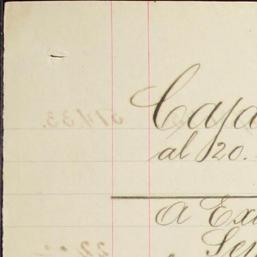 Caja
al 20.
a Ex
Sep